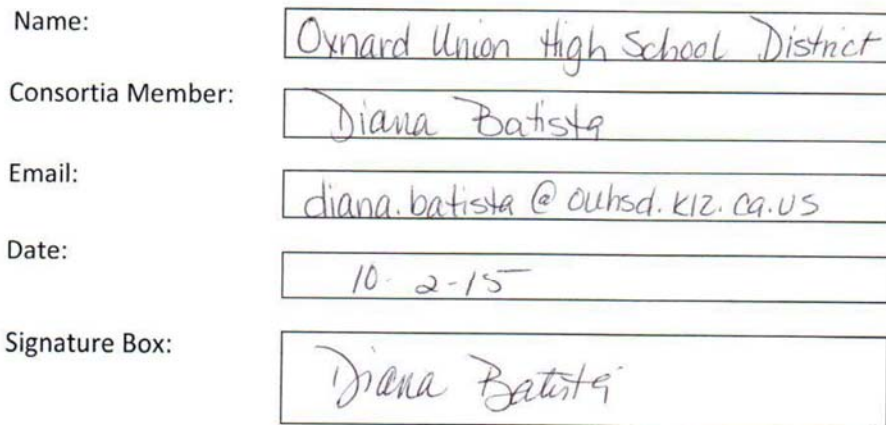 Name: Oxnard Union High School District
Consortia Member: Diana Batista
Email: diana.batista@ouhsd.k12.ca.us
Date: 10-2-15
Signature Box: Diana Batista